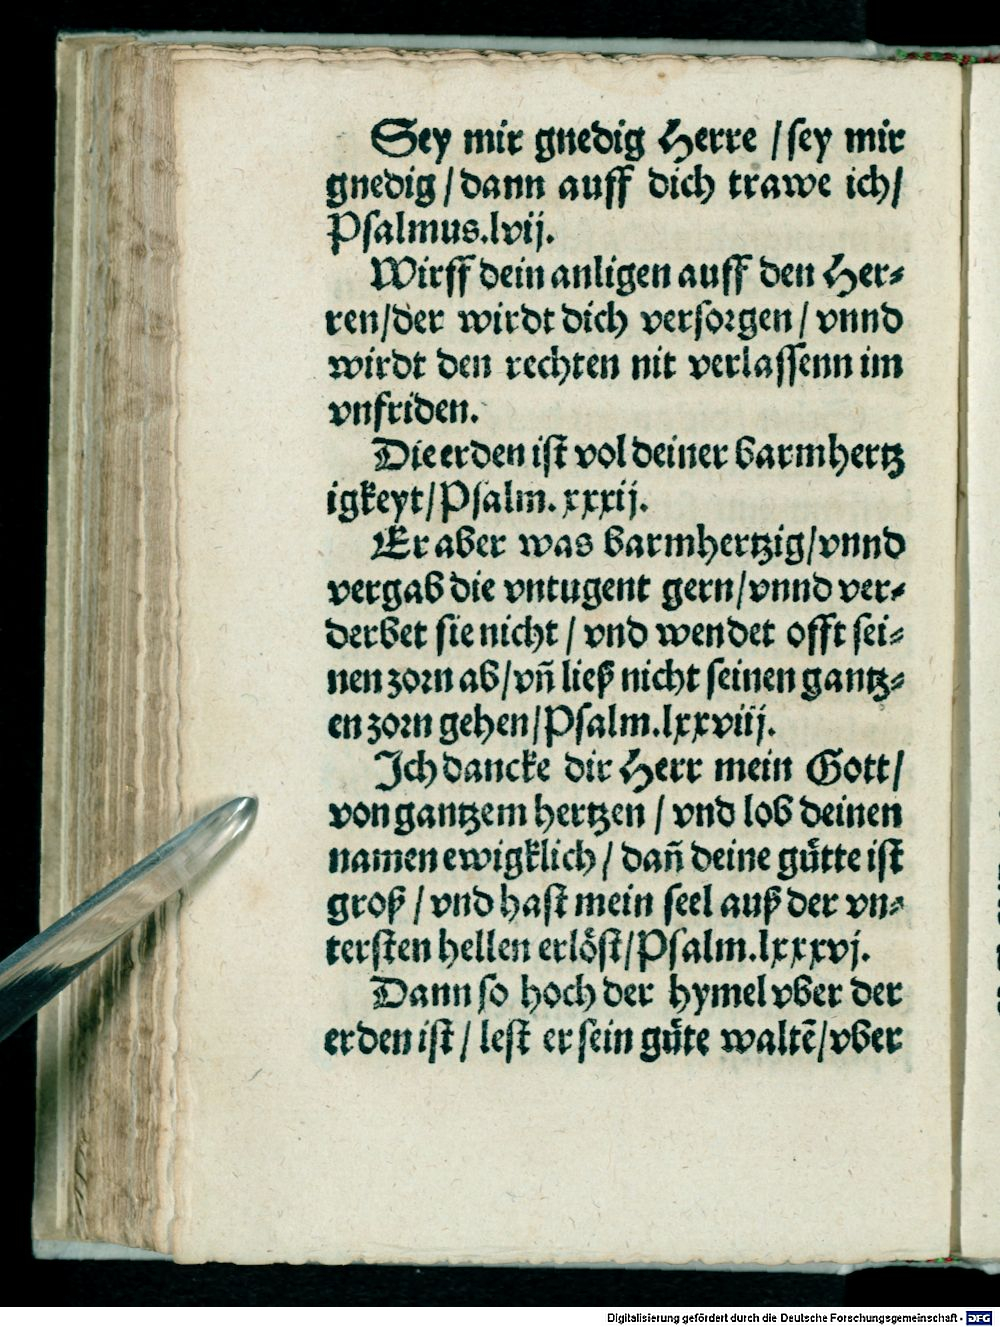 Sey mir gnedig Herre / sey mir
gnedig / dann auff dich trawe ich /
Psalmus.lvij.
Wirff dein anligen auff den Her⸗
ren / der wirdt dich versorgen / vnnd
wirdt den rechten nit verlassenn im
vnfriden.
Die erden ist vol deiner barmhertz
igkeyt / Psalm. xxxij.
Er aber was barmhertzig / vnnd
vergab die vntugent gern / vnnd ver⸗
derbet sie nicht / vnd wendet offt sei⸗
nen zorn ab / vñ ließ nicht seinen gantz⸗
en zorn gehen / Psalm.lxxviij.
Ich dancke dir Herr mein Gott /
von gantzem hertzen / vnd lob deinen
namen ewigklich / dañ deine guͤtte ist
groß / vnd hast mein seel auß der vn⸗
tersten hellen erloͤst / Psalm.lxxxvj.
Dann so hoch der hymel vber der
erden ist / lest er sein guͤte waltẽ / vber
Digitalisierung gefördert durch die Deutsche Forschungsgemeinschaft - DFG